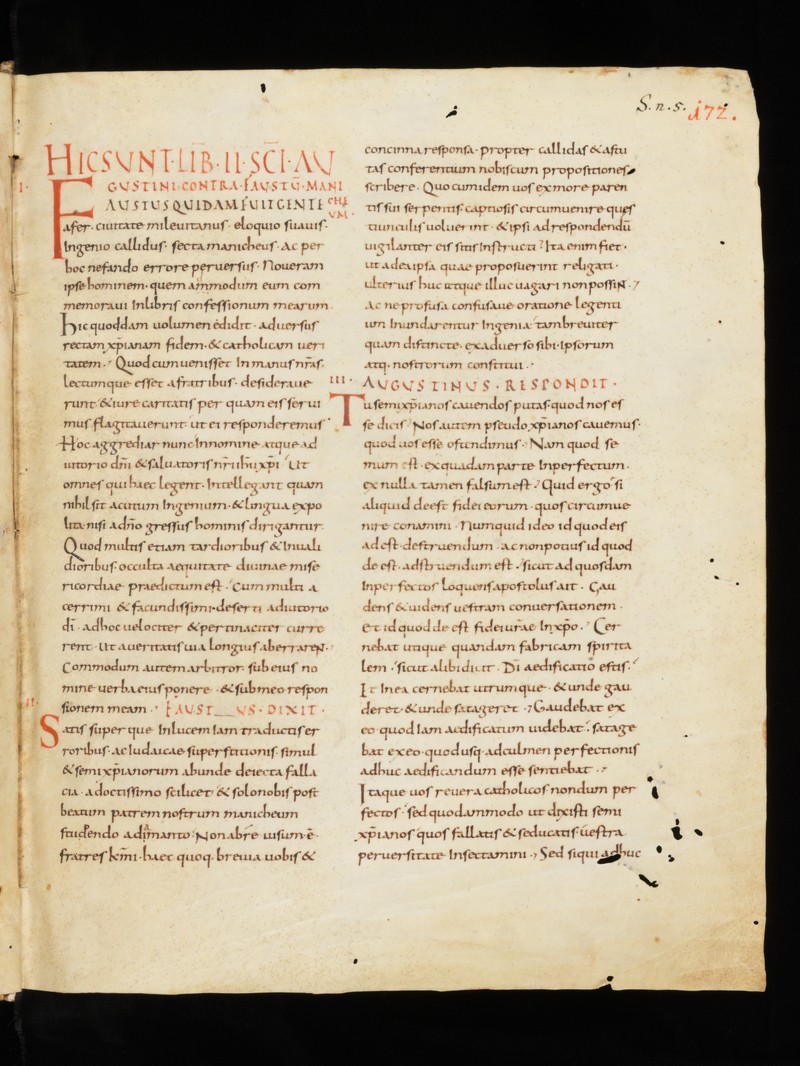 S. n. 5. 172.
HIC SUNT · LIB̅ · II · SC̅I · AU
GUSTINI · CONTRA · FAUSTU̅ · MANI
CHEUM ·
I ·
FAUSTUS QUIDAM FUIT GENTE
afer · ciuitate mileuitanus · eloquio suauis ·
Ingenio callidus · secta manicheus · Ac per
hoc nefando errore peruersus · Noueram
ipse hominem · quem ammodum eum com
memoraui Inlibris confessionum mearum ·
hic quoddam uolumen edidit · aduersus
rectam xp̅ianam fidem · & catholicam ueri
tatem · Quod cum uenisset In manus nr̅as ·
lectumque esset afratribus · desideraue
runt · & iure caritatis per quam eis serui
mus flagitauerunt · ut ei responderemus ·
Hoc aggrediar nunc Innomine atque ad
iutorio dn̅i & saluatoris nr̅i ih̅u xp̅i · Ut
omnes qui haec legent · Intellegant quam
nihil sit acutum Ingenium · & lingua expo
lita · nisi adn̅o gressus hominis dirigantur ·
Quod multis etiam tardioribus & Inuali
dioribus · occulta aequitate diuinae mise
ricordiae praedictum est · Cum multi a
cerrimi & facundissimi · deserti adiutorio
di̅ · adhoc uelociter & pertinaciter curre
rent · Ut a ueritatis uia longius aberrareN ·
Commodum autem arbitror · sub eius no
mine uerba eius ponere · & sub meo respon
sionem meam · FAUSTUS · DIXIT ·
II ·
Satis superque Inlucem Iam traductis er
roribus · ac Iudaicae superstitionis · simul
& semixp̅ianorum abunde deiecta falla
cia · adoctissimo scilicet & solo nobis post
beatum patrem nostrum manicheum
studendo adimanto · Non abre uisum e̅ ·
fratres kmi · haec quoq · breuia uobis &
concinna responsa · propter callidas & astu
tas conferentium nobiscum propositiones
scribere · Quo cum idem uos ex more paren
tis sui serpentis captiosis circumuenire ques
tiunculis uoluerint · & ipsi ad respondendu̅
uigilanter eis sitis Instructi · Ita enim fiet ·
ut ad ea ipsa quae proposuerint religati ·
ulterius huc atque illuc uagari non possiN ·
Ac ne profusa confusaue oratione legenti
um Inundarentur Ingenia · tam breuiter
quam distincte · ex aduerso sibi · Ipsorum
atq · nostrorum constitui ·
III · AUGUSTINUS · RESPONDIT ·
Tu semixp̅ianos cauendos putas · quod nos es
se dicis · Nos autem pseudo xp̅ianos cauemus ·
quod uos esse ostendimus · Nam quod se
mum est · ex quadam parte Inperfectum ·
ex nulla tamen falsum est · Quid ergo si
aliquid deest fidei eorum · quos circumue
nire conamini · Numquid ideo id quod eis
adest · destruendum · ac non potius id quod
deest · adstruendum est · sicut ad quosdam
Inperfectos loquens apostolus ait · Gau
dens & uidens uestram conuersationem ·
Et id quod deest fidei ur̅ae Inxp̅o · Cer
nebat utique quandam fabricam spirita
lem · sicut alibi dicit · Di̅ aedificatio estis ·
It Inea cernebat utrumque · & unde gau
deret · & unde satageret · Gaudebat ex
eo quod Iam aedificatum uidebat · satage
bat ex eo · quod usq · ad culmen perfectionis
adhuc aedificandum esse sentiebat ·
Itaque uos reuera catholicos nondum per
fectos · sed quodammodo ut dixisti semi
xp̅ianos quos fallatis & seducatis uestra
peruersitate Insectamini · Sed siqui adhuc